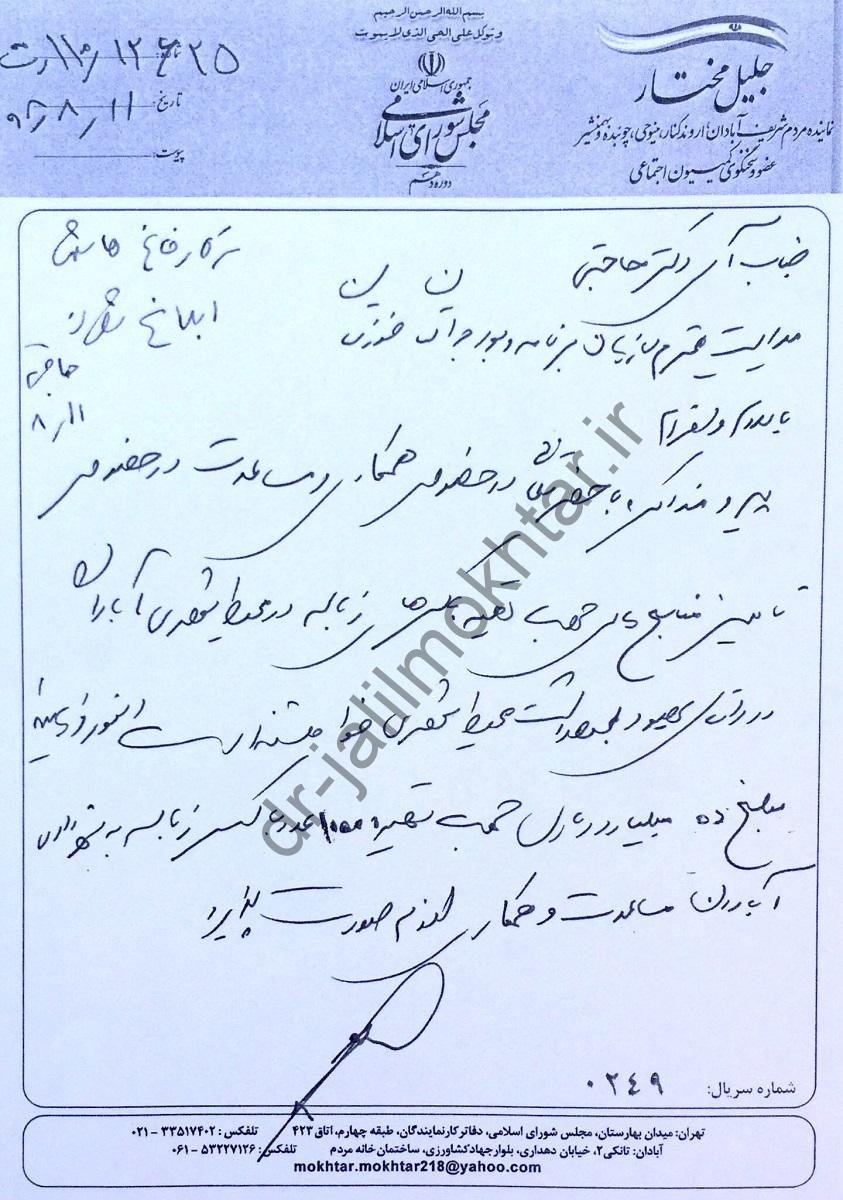 بسم الله الرحمن الرحیم
و توکل علی الحی الذی لا یموت
جمهوری اسلامی ایران
مجلس شورای اسلامی
دوره دهم
جلیل مختار
نماینده مردم شریف آبادان، اروندکنار، مینوحی، چوئبده و بهمنشیر
عضو و سخنگوی کمیسیون اجتماعی
تاریخ:
پیوست:
جناب آقای دکتر حاجتی
مدیریت محترم سازمان برنامه و بودجه استان خوزستان
با سلام و احترام
پیرو مذاکره با حضرتعالی در خصوص همکاری و مساعدت در خصوص
تامین منابع مالی جهت تهیه باکس های زباله در محیط شهری آبادان
در راستای بهبود بهداشت محیط شهری خواهشمند است دستور فرمایید
مبلغ ده میلیارد ریال جهت تهیه ۱۰۰۰ عدد باکس زباله به شهرداری
آبادان مساعدت و همکاری لازم صورت پذیرد
شماره سریال: ۰۲۴۹
تهران: میدان بهارستان، مجلس شورای اسلامی، دفاتر کار نمایندگان، طبقه چهارم، اتاق ۴۲۳ تلفکس: ۳۳۵۱۷۴۰۲ - ۰۲۱
آبادان: تانکی ۲، خیابان دهداری، بلوار جهاد کشاورزی، ساختمان خانه مردم تلفکس: ۵۳۲۲۷۱۲۶ - ۰۶۱
mokhtar.mokhtar218@yahoo.com
dr-jalilmokhtar.ir